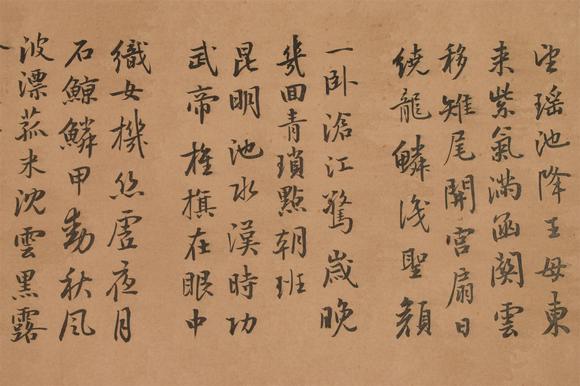 望瑶池降王母東
来紫氣滿函關雲
移雉尾開宮扇日
繞龍鱗識聖顔
一卧滄江驚歲晚
幾回青瑣點朝班
昆明池水漢時功
武帝旌旗在眼中
織女機絲虛夜月
石鯨鱗甲動秋風
波漂菰米沈雲黑露